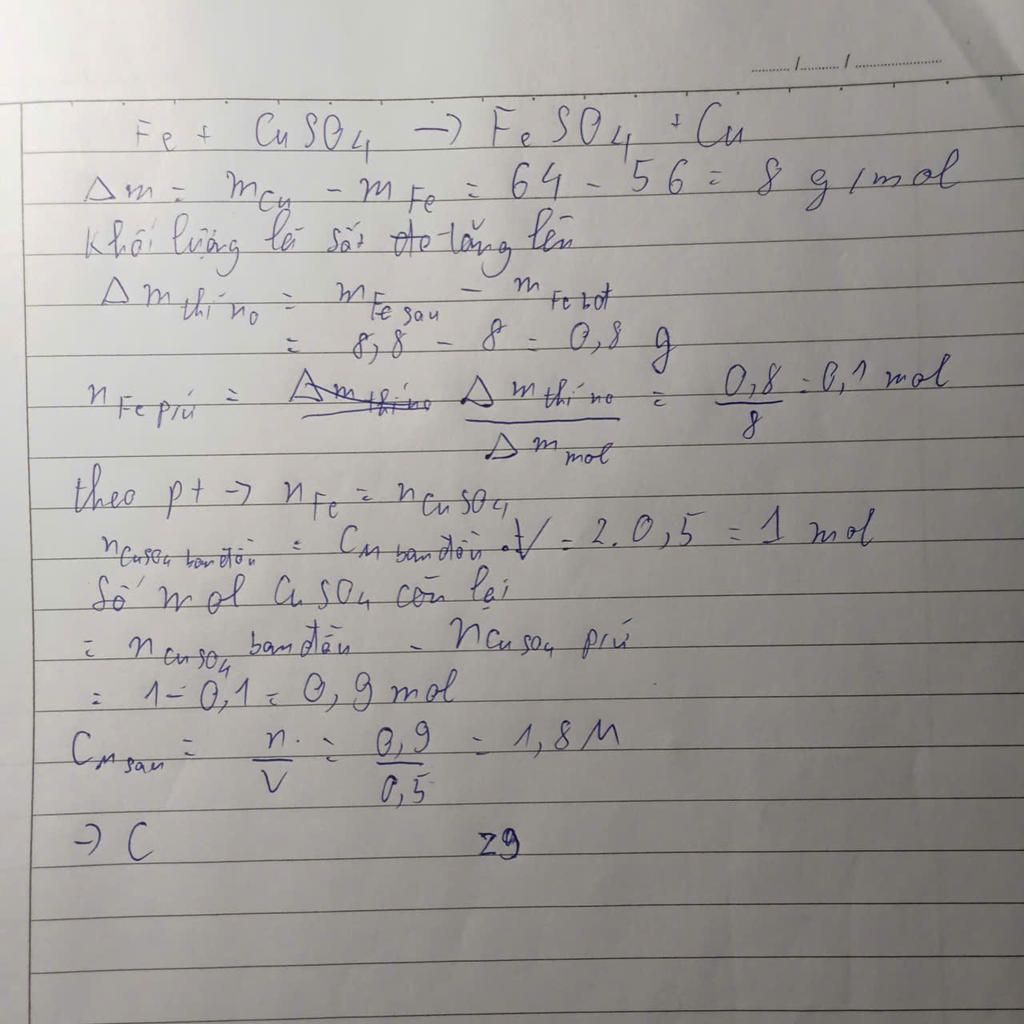 ....../....../......
Fe + CuSO4 → FeSO4 + Cu
Δm = mCu - mFe = 64 - 56 = 8 g/mol
Khối lượng lá sắt tăng lên
Δm thí no = mFe sau - mFe
= 8,8 - 8 = 0,8 g
nFe p/ứ = Δm thí no Δm thí no / Δm mol = 0,8/8 = 0,1 mol
theo pt → nFe = nCuSO4
nCuSO4 ban đầu = CM ban đầu . V = 2.0,5 = 1 mol
Số mol CuSO4 còn lại
= nCuSO4 ban đầu - nCuSO4 p/ứ
= 1 - 0,1 = 0,9 mol
CM sau = n/V = 0,9/0,5 = 1,8 M
→ C
29